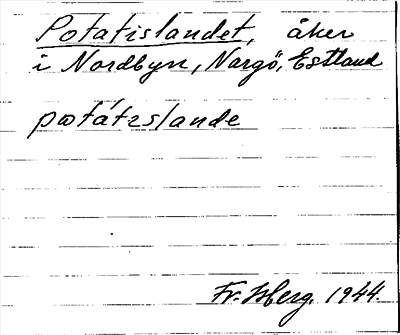 Potatislandet, åker
i Nordbyn, Nargö, Estland
potátɪslande
Fr. Isberg. 1944.